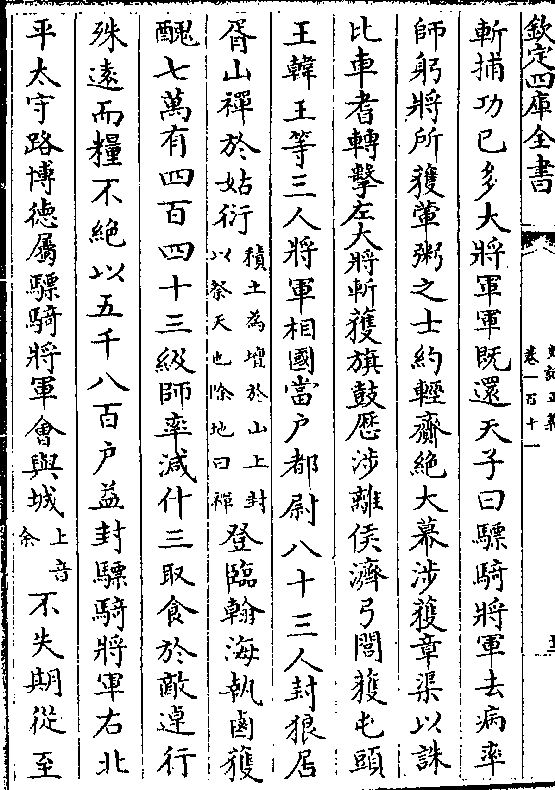 欽定四庫全書
史記正義
卷一百十一
斬捕功已多大將軍軍既還天子曰驃騎將軍去病率
師躬將所獲葷粥之士約輕齎絶大幕涉獲章渠以誅
比車耆轉擊左大將斬獲旗鼓歷涉離侯濟弓閭獲屯頭
王韓王等三人將軍相國當户都尉八十三人封狼居
胥山禪於姑衍積土為壇於山上封以祭天也除地曰禪登臨翰海執鹵獲
醜七萬有四百四十三級師率減什三取食於敵逴行
殊遠而糧不絶以五千八百户益封驃騎將軍右北
平太守路博德屬驃騎將軍會與城上音余不失期從至